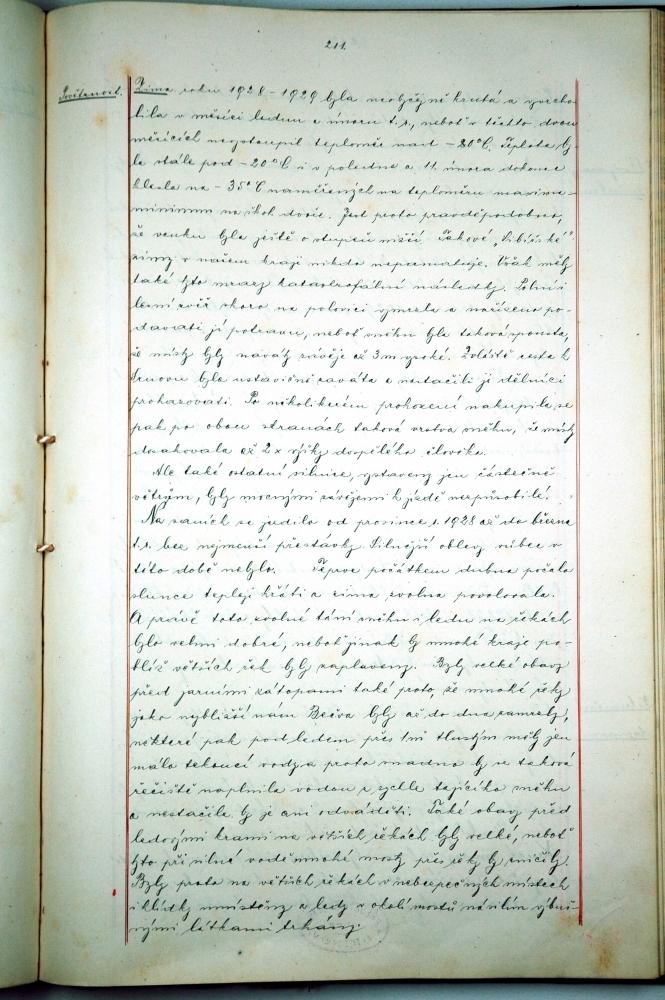 211.
Povětrnost.
Zima roku 1928-1929 byla neobyčejně krutá a vyvrcho-
lila v měsíci lednu a únoru t.r., neboť v těchto dvou
měsících nevystoupil teploměr nad -20°C. Teplota by-
la stále pod -20°C i v poledne a 11. února dokonce
klesla na -35°C naměřených na teploměru maxima-
minimum na škol. dvoře. Jest proto pravděpodobno,
že venku byla ještě o stupeň nižší. Takové „Sibiřské"
zimy v našem kraji nikdo nepamatuje. Však měly
také tyto mrazy katastrofální následky. Polní i
lesní zvěř skoro na polovici vymrzla a nařízeno po-
dávati jí potravu, neboť sněhu byla taková spousta,
že místy byly naváty závěje až 3 m vysoké. Zvláště cesta k
Trnovu byla ustavičně zaváta a nestačili ji dělníci
prohazovati. Po několikerém prohození nakupila se
pak po obou stranách taková vrstva sněhu, že místy
dosahovala až 2 x výšky dospělého člověka.
Ale také ostatní silnice, vystaveny jen částečně
větrům, byly mocnými závějemi k jízdě nezpůsobilé.
Na saních se jezdilo od prosince r. 1928 až do března
t.r. bez nejmenší přestávky. Silnější oblevy vůbec v
této době nebylo. Teprve počátkem dubna počalo
slunce tepleji hřáti a zima zvolna povolovala.
A právě toto zvolné tání sněhu i ledu na řekách
bylo velmi dobré, neboť jinak by mnohé kraje po-
blíž větších řek byly zaplaveny. Byly velké obavy
před jarními zátopami také proto, že mnohé řeky
jako nejbližší nám Bečva byly až do dna zamrzlé,
některé pak pod ledem přes 1 m tlustým měly jen
málo tekoucí vody a proto snadno by se taková
řečiště naplnila vodou z rychle tajícího sněhu
a nestačila by je ani odváděti. Také obavy před
ledovými krami na větších řekách byly velké, neboť
tyto při silné vodě mnohé mosty přes řeky by zničily.
Byly proto na větších řekách v nebezpečných místech
i hlídky umístěny a ledy v okolí mostů násilím výbuš-
nými látkami trhány.